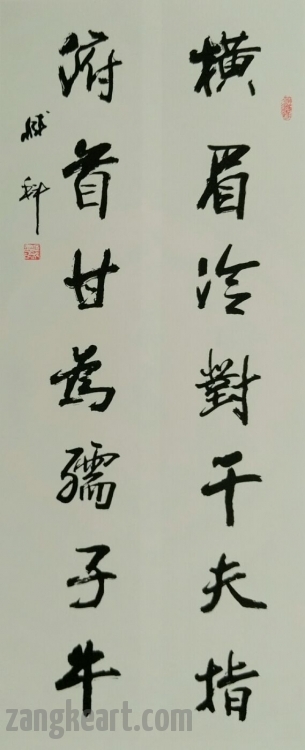 横眉冷對千夫指
俯首甘為孺子牛
臧科
zangkeart.com